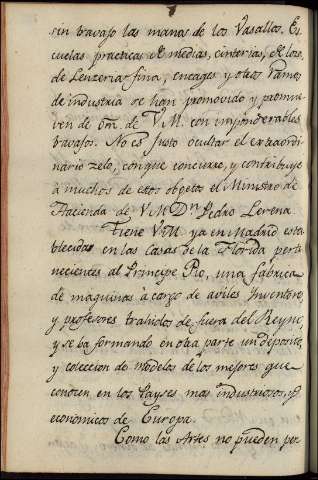 sin travajo las manos de los Vasallos. Es
cuelas practicas de medias, cinterias, de loza,
de Lenzeria fina, encages y otros ramos
de industria se han promovido y promue
ven de orn. de V.M. con imponderables
travajos. No es justo ocultar el extraordi
nario zelo, con que concurre, y contribuye
à muchos de estos objetos el Ministro de
Hacienda de V M Dn. Pedro Lerena
Tiene V.M. ya en Madrid esta
blecida en las Casas de la Florida perte
necientes al Principe Pio, una fabrica
de maquinas à cargo de aviles Inventores,
y profesores trahidos de fuera del Reyno,
y se ba formando en otra parte un deposito,
y coleccion de modelos de los mejores que
conocen en los Payses mas industriosos, y
economicos de Europa.
Como las Artes no pueden per